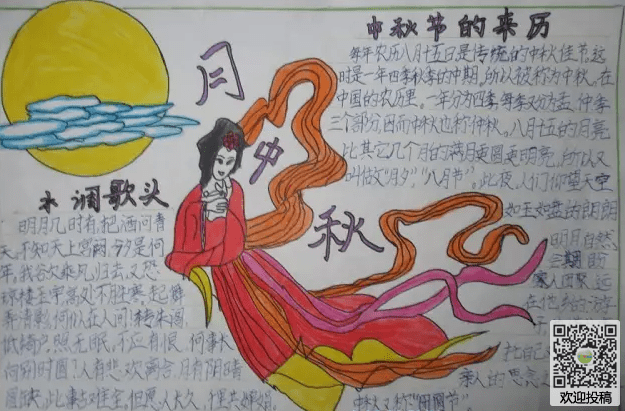 中秋节的来历
每年农历八月十五日是传统的中秋佳节.这
时是一年四季秋季的中期,所以被称为中秋,在
中国的农历里。一年分为四季,每季又分为孟、仲、季
三个部分,因而中秋也称仲秋。八月十五的月亮
比其它几个月的满月更圆,更明亮,所以又
叫做"月夕","八月节"。此夜,人们仰望天空
如玉如盘的朗朗
明月,自然
会期盼
家人团聚.远
在他乡的游
子
托自己
亲人的思念之
中秋又称"团圆节"
月
中
秋
水调歌头
明月几时有,把酒问青
天。不知天上宫阙,今夕是何
年。我欲乘风归去,又恐
琼楼玉宇,高处不胜寒.起舞
弄清影,何似在人间!转朱阁,
低绮户,照无眠.不应有恨,何事长
向别时圆?人有悲欢离合,月有阴晴
圆缺,此事古难全.但愿人长久,
欢迎投稿